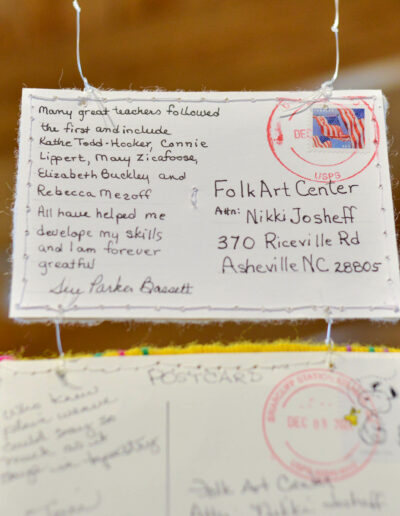 Many great teachers followed
the first and include
Kathe Todd-Hooker, Connie
Lippert, Mary Zicafoose,
Elizabeth Buckley and
Rebecca Mezoff
All have helped me
develope my skills
and I am forever
greatful
Sue Parker Bassett
DEC
USPS
Folk Art Center
Attn: Nikki Josheff
370 Riceville Rd
Asheville NC 28805
POSTCARD
Who knew
plain weave
could say so
much
DEC 09
Folk Art Center
Attn Nikki Josheff